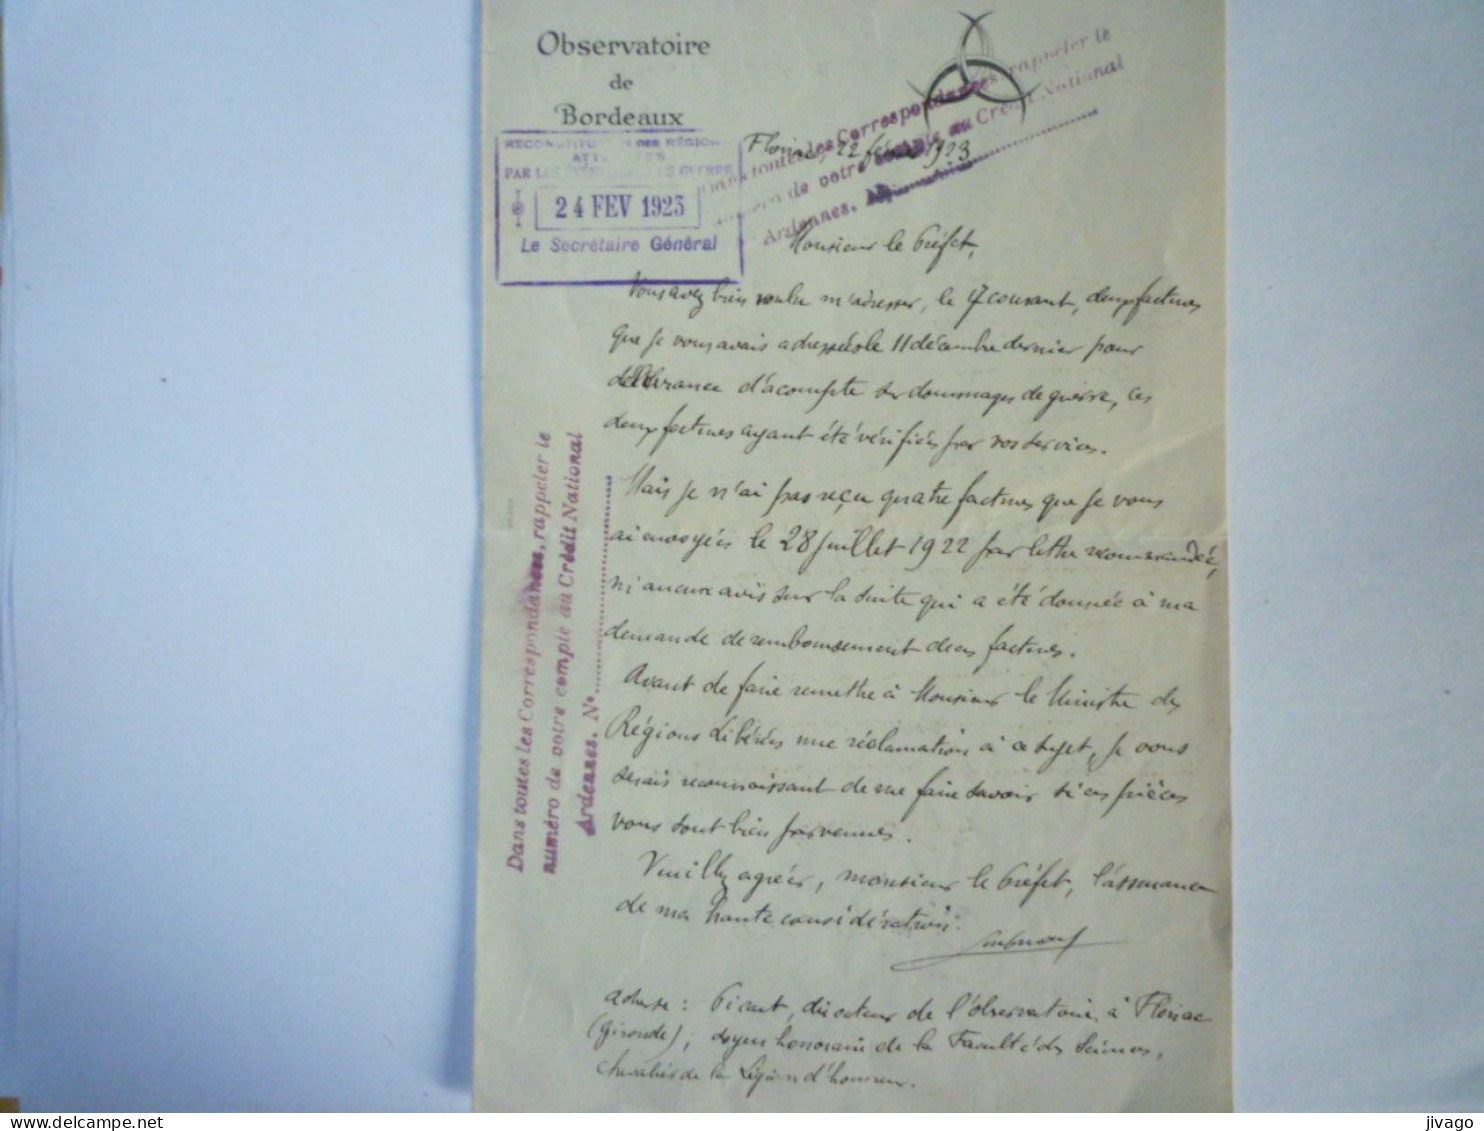 Observatoire
de
Bordeaux
RECONSTITUTION DES RÉGIONS
ATTEINTES
PAR LES ÉVÉNEMENTS DE GUERRE
24 FEV 1923
Le Secrétaire Général
Dans toutes les Correspondances, rappeler le
numéro de votre compte au Crédit National
Ardennes, N°
Floirac, 22 février 1923
Monsieur le Préfet,
Vous avez bien voulu m'adresser, le 17 courant, deux factures
que je vous avais adressées le 11 décembre dernier pour
délivrance d'acompte sur dommages de guerre, ces
deux factures ayant été vérifiées par vos services.
Mais je n'ai pas reçu quatre factures que je vous
ai envoyées le 28 juillet 1922 par lettre recommandée,
ni aucun avis sur la suite qui a été donnée à ma
demande de remboursement de ces factures.
Avant de faire remettre à Monsieur le Ministre des
Régions Libérées une réclamation à ce sujet, je vous
serais reconnaissant de me faire savoir si ces pièces
vous sont bien parvenues.
Veuillez agréer, monsieur le Préfet, l'assurance
de ma haute considération.
adresse : Picart, directeur de l'observatoire, à Floirac
(Gironde) ; doyen honoraire de la Faculté des Sciences,
chevalier de la Légion d'honneur.
Dans toutes les Correspondances, rappeler le
numéro de votre compte au Crédit National
Ardennes. N°
jivago